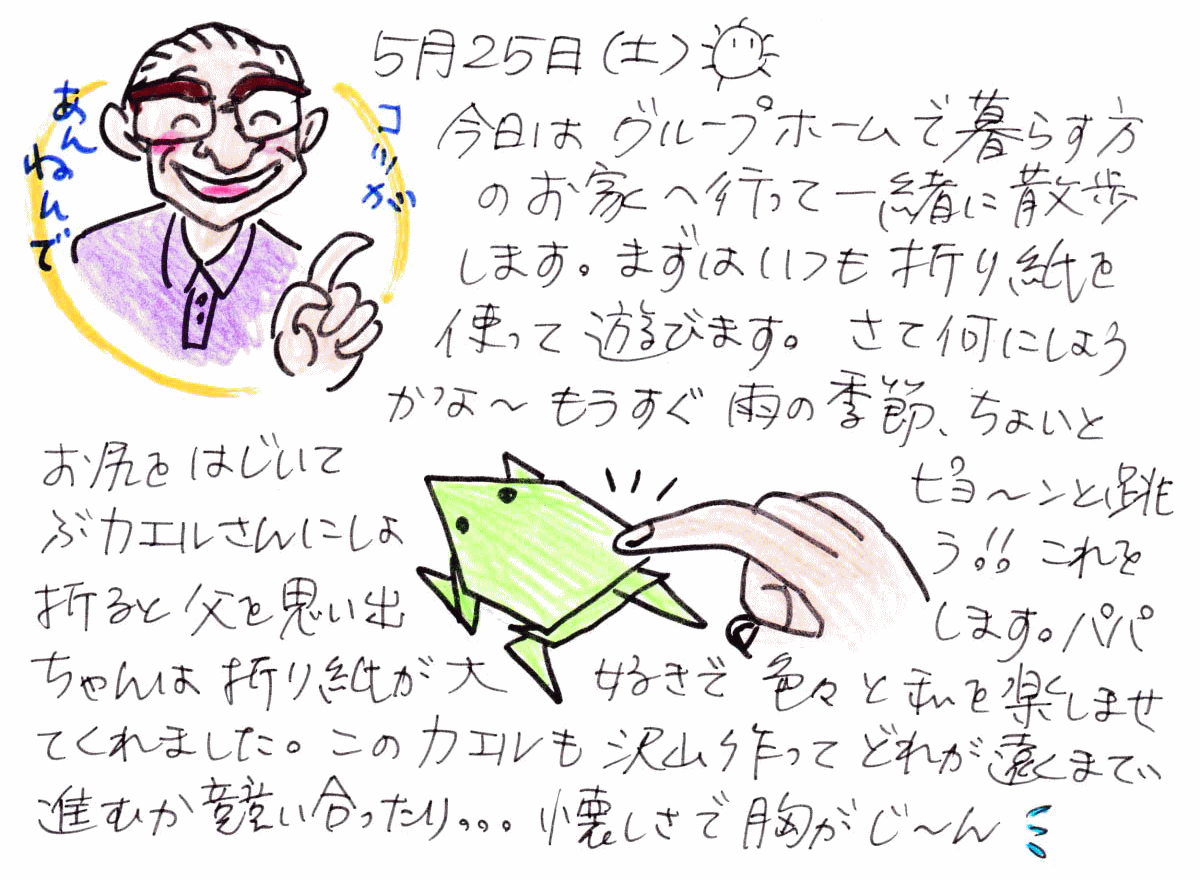 5月25日(土)
コツが
あんねんで
今日は グループホームで暮らす方
のお家へ行って一緒に散歩
します。まずはいつも折り紙を
使って遊びます。さて何にしよう
かな〜もうすぐ雨の季節、ちょいと
お尻をはじいて ピョ〜ンと跳
ぶカエルさんにしよ う!!これを
折ると父を思い出 します。パパ
ちゃんは折り紙が大 好きで色々と私を楽しませ
てくれました。このカエルも沢山作ってどれが遠くまで
進むか競い合ったり。。。懐しさで胸がじ〜ん